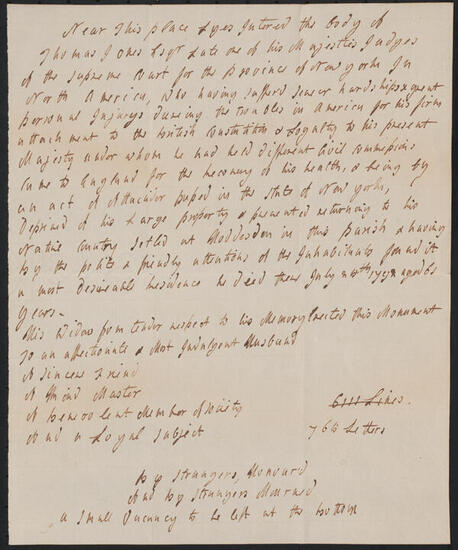 Near This place Lyes Intered the Body of
Thomas Jones Esqr Late one of his Majesties Judges
of the Supreme Court for the Province of New york In
North America, who having sufferd sever hardships & great
personal Injurys dureing the Troubles in America for his firm
attachment to the British Constitution & Loyalty to his present
Majesty under whom he had held different Civil commissions
Came to England for the Recovery of his health, & being by
an act of Attainder pased in the State of New york,
Deprived of his Large property & prevented returning to his
Native Country settled at Hoddesdon in this Parish & having
by the polite & friendly attentions of the Inhabitants found it
a most Desireable Residence he died there July 25th 1792 aged 62
years.
His Widow from tender respect to his Memory Erected this Monument
To an affectionate & Most Indulgent Husband
A Sincere Friend
A Kind Master
A Benevolent Member of Society
And a Loyal Subject
Lines.
Letters
By Strangers, Honourd
And by Strangers Mourned
a Small Vacancy to be left at the bottom